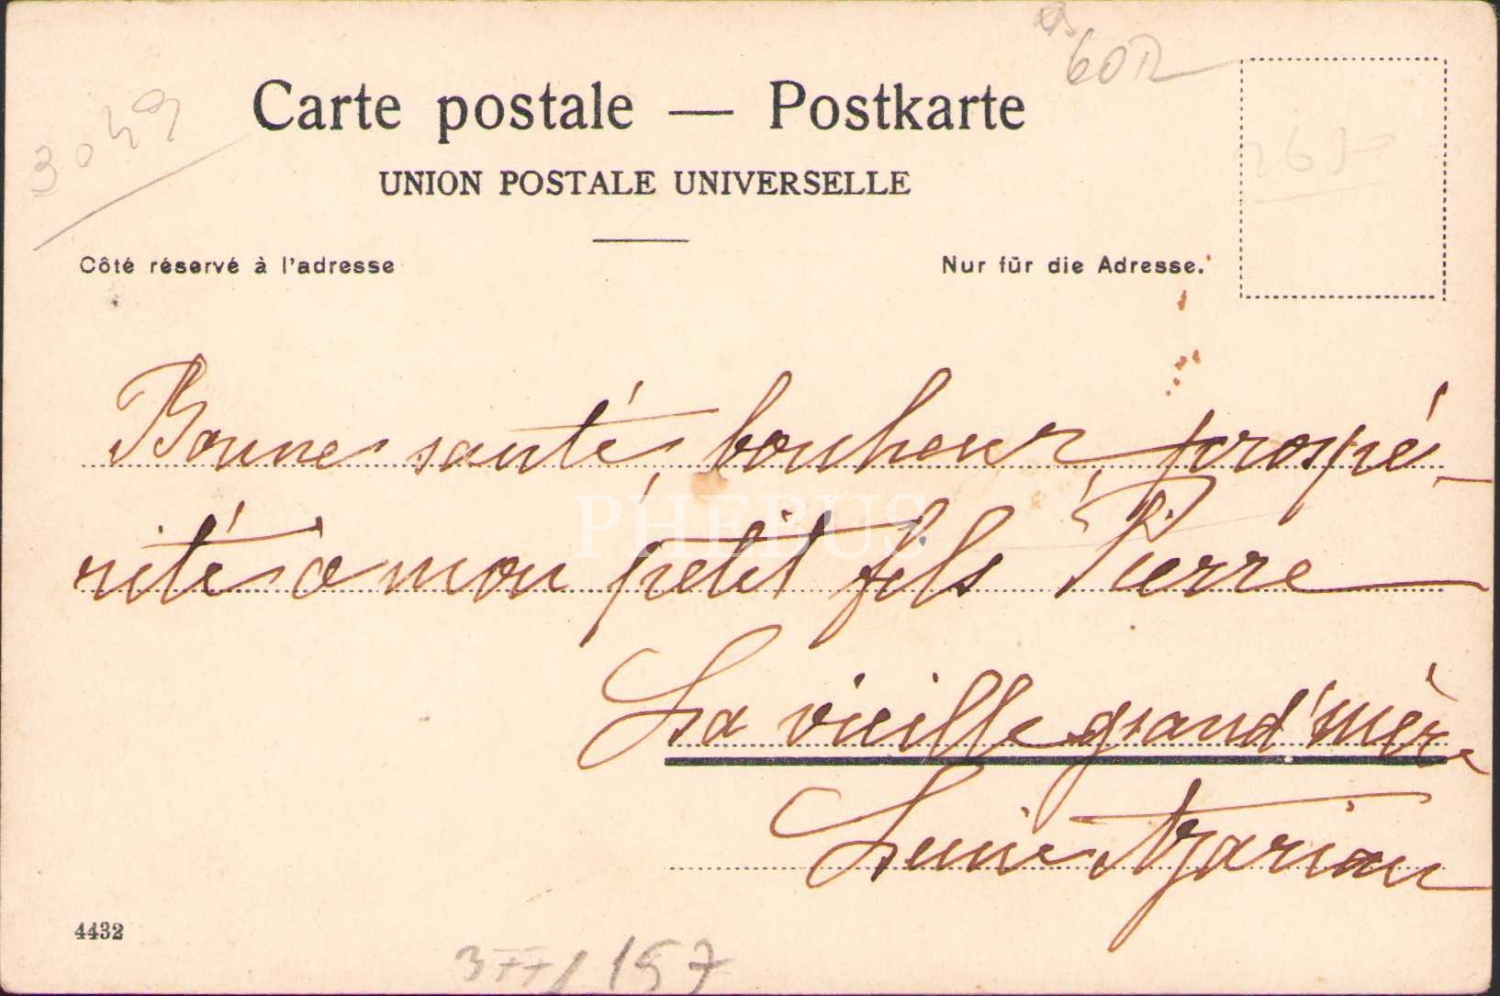 60
3049
Carte postale — Postkarte
UNION POSTALE UNIVERSELLE
Côté réservé à l'adresse
Nur für die Adresse.
Bonne santé, bonheur, prospé-
rité à mon petit fils Pierre
PHEBUS
La vieille grand'mère
Azarian
4432
157